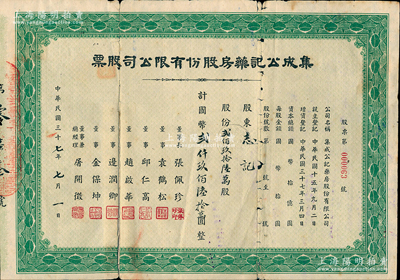 集成公記藥房股份有限公司股票
股票第 000060 號
公司名稱 集成公記藥房股份有限公司
設立登記 中華民國十五年九月二日
增資登記 中華民國三十七年三月四日
資本總額 國幣拾億圓
每股金額 國幣拾圓
股東 志記
股份 貳佰玖拾陸萬股
計國幣貳仟玖佰陸拾萬圓整
董事長 張佩珍
董事 袁鶴松
董事 邱仁高
董事 趙啟華
董事 邊潤卿
董事 金保坤
董事兼總經理 屠開徵
中華民國三十七年七月一日
上海陽明拍賣